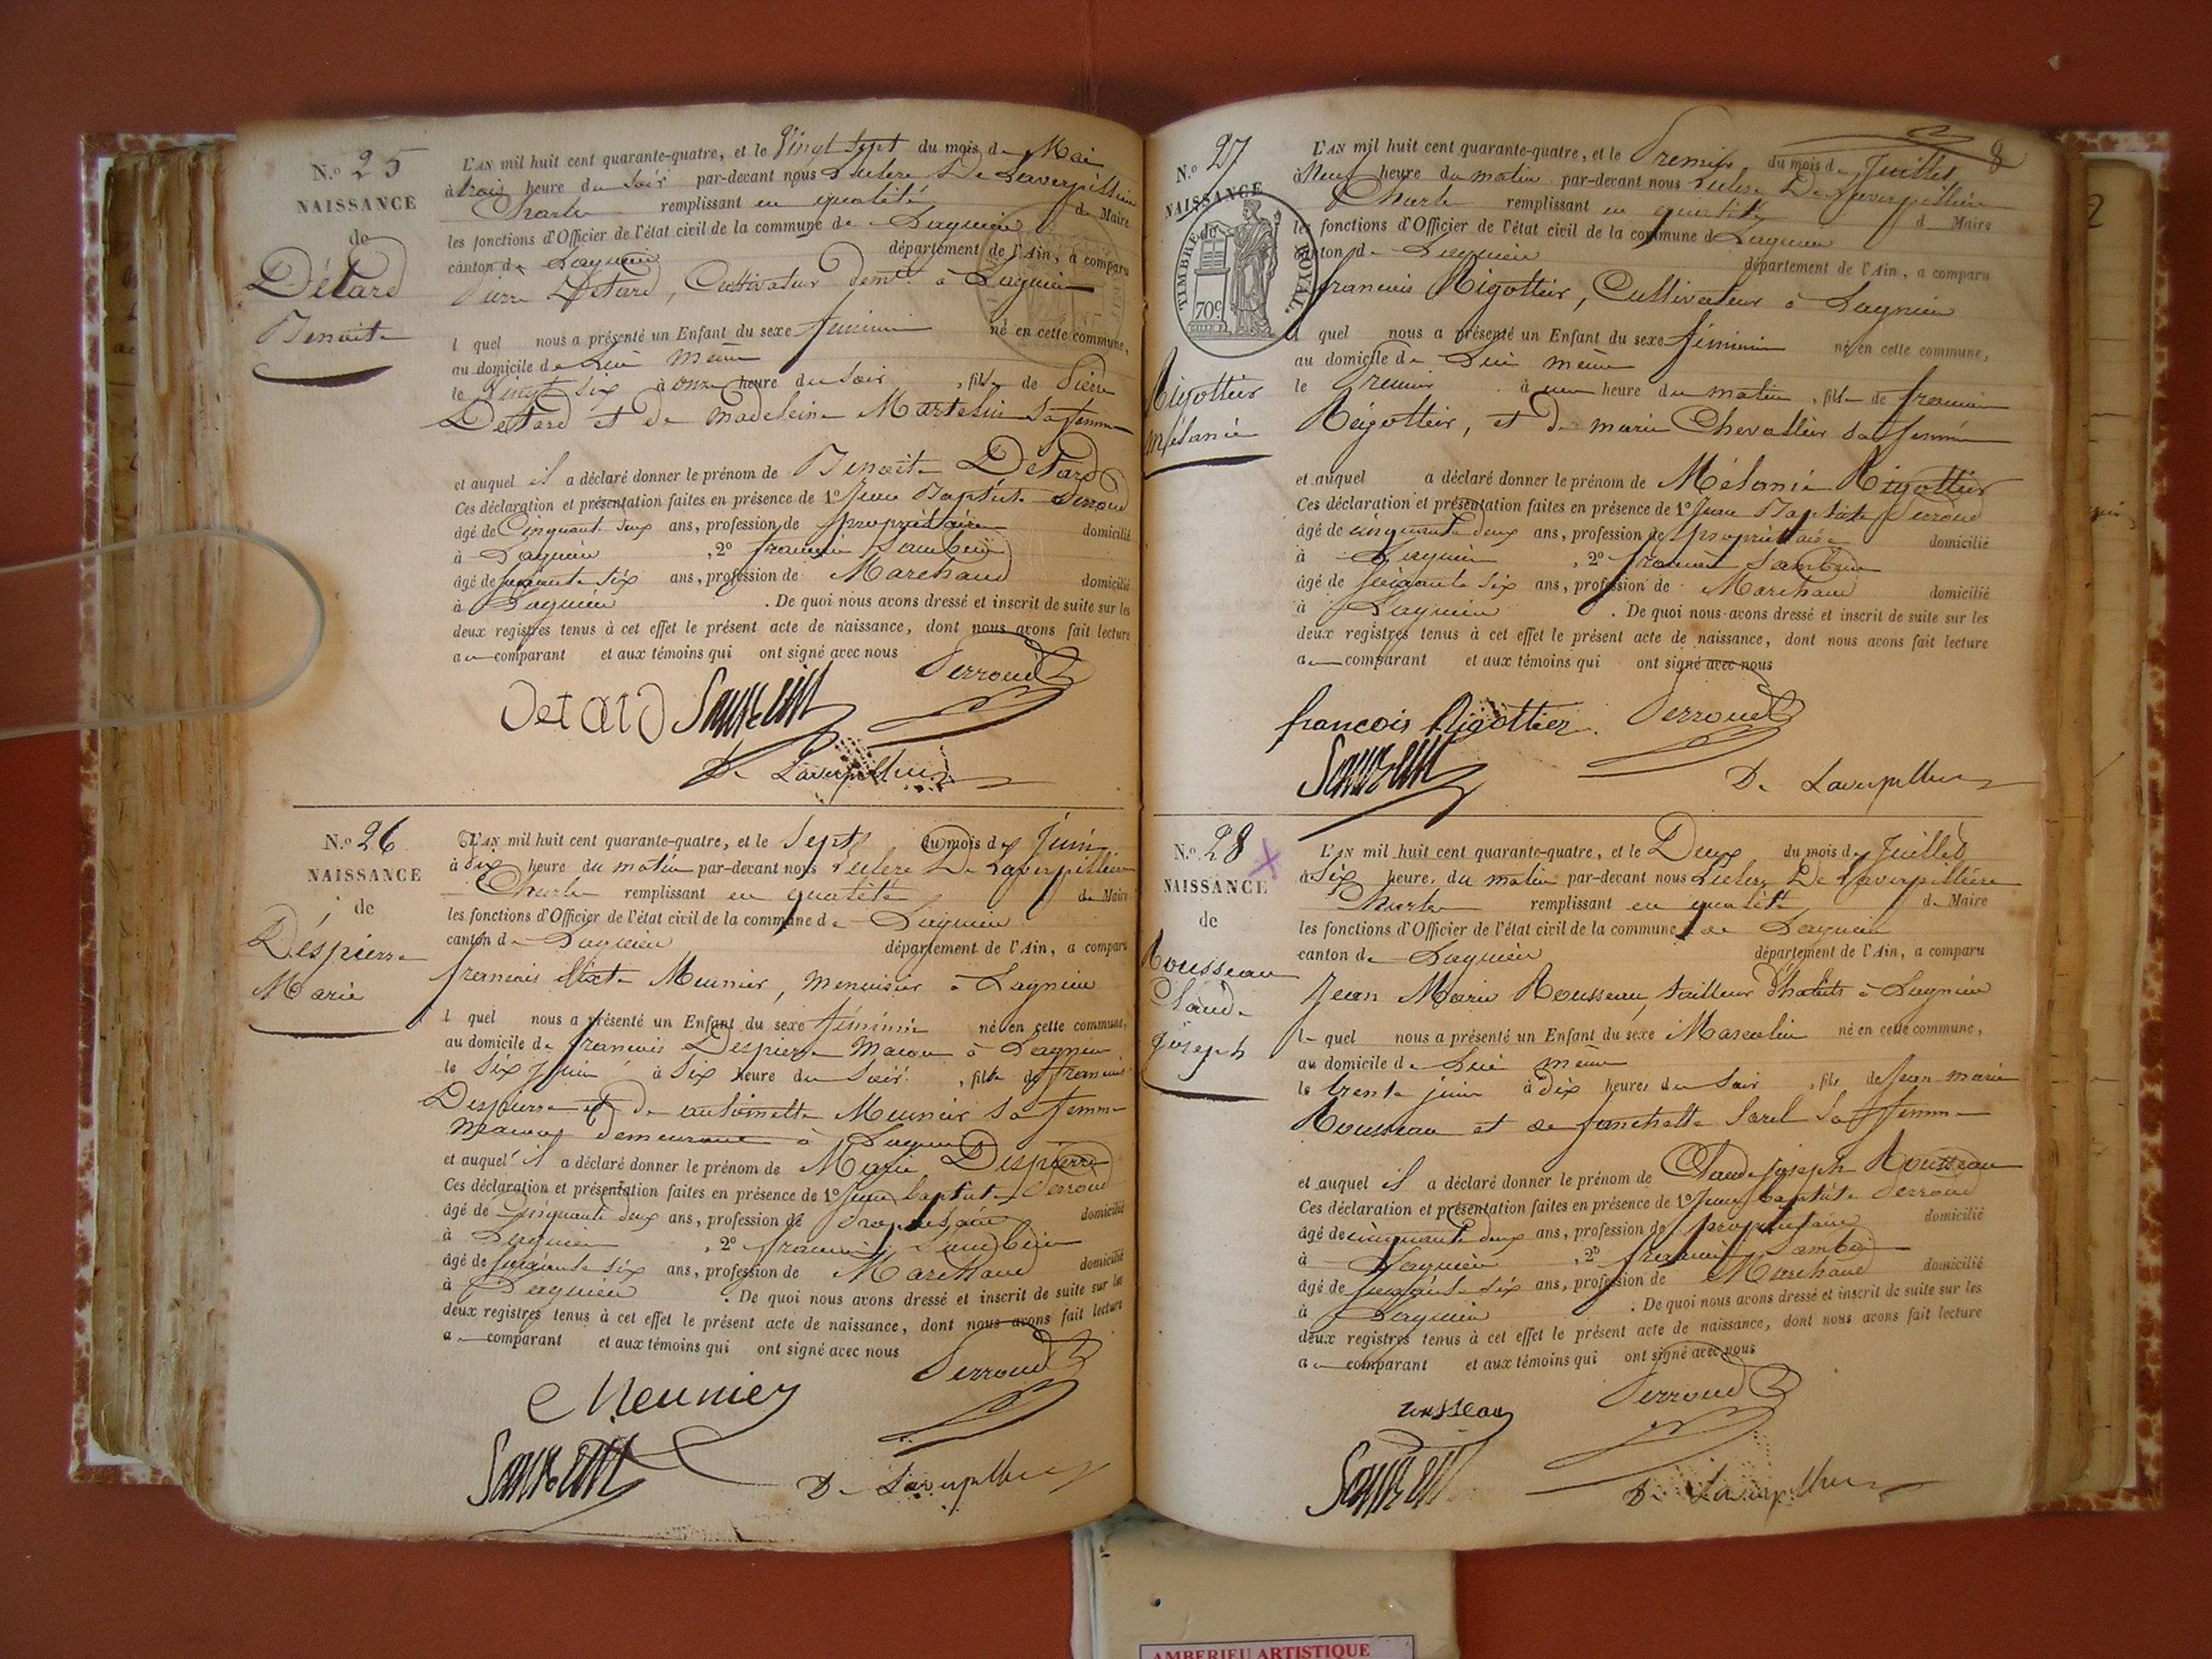 N.o 25
NAISSANCE
de
Détard
Benoite
L'AN mil huit cent quarante-quatre, et le Vingt Sept du mois de Mai
à trois heure du Soir par-devant nous Leclerc De Laverpillière
Charles remplissant en qualité de Maire
les fonctions d'Officier de l'état civil de la commune de Lagnieu
canton de Lagnieu département de l'Ain, a comparu
Pierre Détard, Cultivateur demt. à Lagnieu
l quel nous a présenté un Enfant du sexe féminin né en cette commune,
au domicile de Lui même
le Vingt six à onze heure du Soir, fille de Pierre
Detard et de Madeleine Martelin sa femme
et auquel il a déclaré donner le prénom de Benoite Détard
Ces déclaration et présentation faites en présence de 1o Jean Baptiste Perroud
âgé de Cinquante deux ans, profession de propriétaire domicilié
à Lagnieu, 2o francois
âgé de soixante six ans, profession de Marchand domicilié
à Lagnieu. De quoi nous avons dressé et inscrit de suite sur les
deux registres tenus à cet effet le présent acte de naissance, dont nous avons fait lecture
au comparant et aux témoins qui ont signé avec nous
Perroud
Detard
De Laverpilliere
N.o 26
NAISSANCE
de
Déspierre
Marie
L'AN mil huit cent quarante-quatre, et le Sept du mois de Juin
à dix heure du matin par-devant nous Leclerc De Laverpillière
Charles remplissant en qualité de Maire
les fonctions d'Officier de l'état civil de la commune de Lagnieu
canton de Lagnieu département de l'Ain, a comparu
francois Meunier, menuisier à Lagnieu
l quel nous a présenté un Enfant du sexe féminin né en cette commune,
au domicile de francois Despierre Macon à Lagnieu
le Six Juin à Six heure du Soir, fille de francois
Despierre et de antoinette Meunier sa femme
macon demeurant à Lagnieu
et auquel il a déclaré donner le prénom de Marie Despierre
Ces déclaration et présentation faites en présence de 1o Jean Baptiste Perroud
âgé de Cinquante deux ans, profession de Propriétaire domicilié
à Lagnieu, 2o francois
âgé de soixante six ans, profession de Marchand domicilié
à Lagnieu. De quoi nous avons dressé et inscrit de suite sur les
deux registres tenus à cet effet le présent acte de naissance, dont nous avons fait lecture
au comparant et aux témoins qui ont signé avec nous
Perroud
Meunier
De Laverpilliere
8
N.o 27
NAISSANCE
TIMBRE ROYAL
70c
Rigottier
mélanie
L'AN mil huit cent quarante-quatre, et le Premier du mois de Juillet
à Neuf heure du matin par-devant nous Leclerc De Laverpillière
Charles remplissant en qualité de Maire
les fonctions d'Officier de l'état civil de la commune de Lagnieu
canton de Lagnieu département de l'Ain, a comparu
francois Rigottier, Cultivateur à Lagnieu
l quel nous a présenté un Enfant du sexe féminin né en cette commune,
au domicile de Lui même
le Premier à une heure du matin, fille de francois
Rigottier, et de marie Chevallier sa femme
et auquel a déclaré donner le prénom de Mélanie Rigottier
Ces déclaration et présentation faites en présence de 1o Jean Baptiste Perroud
âgé de cinquante deux ans, profession de propriétaire domicilié
à Lagnieu, 2o francois
âgé de soixante six ans, profession de Marchand domicilié
à Lagnieu. De quoi nous avons dressé et inscrit de suite sur les
deux registres tenus à cet effet le présent acte de naissance, dont nous avons fait lecture
au comparant et aux témoins qui ont signé avec nous
francois Rigottier. Perroud
De Laverpilliere
N.o 28 X
NAISSANCE
de
Rousseau
Claude
Joseph
L'AN mil huit cent quarante-quatre, et le Deux du mois de Juillet
à Six heure du matin par-devant nous Leclerc De Laverpillière
Charles remplissant en qualité de Maire
les fonctions d'Officier de l'état civil de la commune de Lagnieu
canton de Lagnieu département de l'Ain, a comparu
Jean Marie Rousseau, tailleur d'habits à Lagnieu
le quel nous a présenté un Enfant du sexe Masculin né en cette commune,
au domicile de Lui même
le trente juin à dix heures du Soir, fils de Jean marie
Rousseau et de fanchette sa femme
et auquel il a déclaré donner le prénom de Claude Joseph Rousseau
Ces déclaration et présentation faites en présence de 1o Jean baptiste Perroud
âgé de cinquante deux ans, profession de propriétaire domicilié
à Lagnieu, 2o francois
âgé de soixante six ans, profession de Marchand domicilié
à Lagnieu. De quoi nous avons dressé et inscrit de suite sur les
deux registres tenus à cet effet le présent acte de naissance, dont nous avons fait lecture
au comparant et aux témoins qui ont signé avec nous
Perroud
rousseau
De Laverpilliere
AMBERIEU ARTISTIQUE